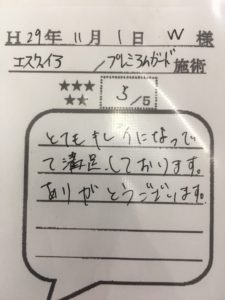 H29年11月1日 W 様
エスクァイア/プレミアムガード 施術
★★★★★ 5/5
とてもきれいになってい
て満足しております。
ありがとうございます。